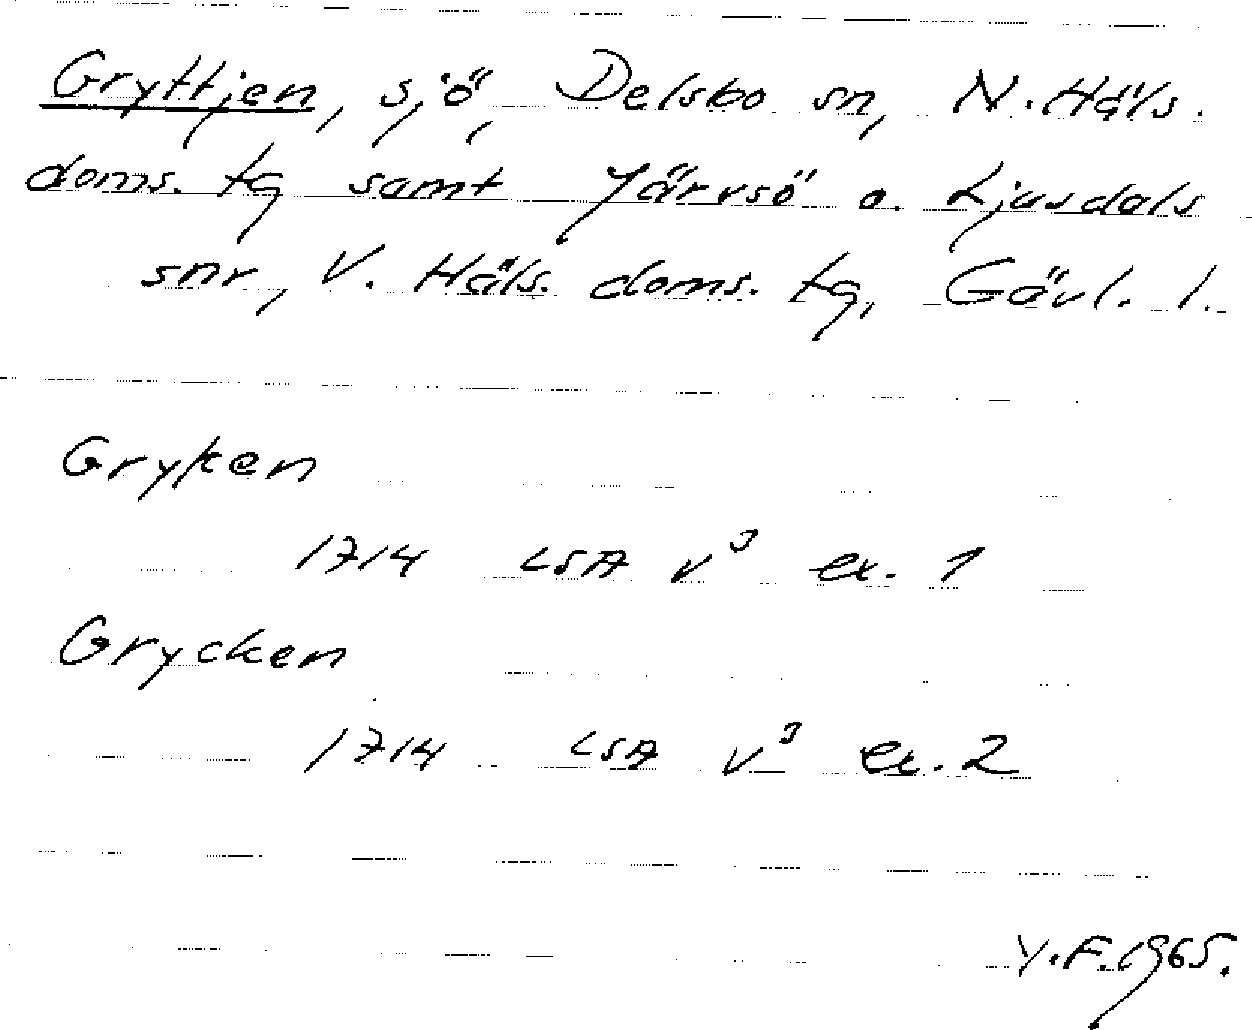 Gryttjen, sjö, Delsbo sn, N. Häls.
doms. tg samt Järvsö o. Ljusdals
snr, V. Häls. doms. tg, Gävl. l.
Gryken
1714 LSA V³ ex. 1
Grycken
1714 LSA V³ ex. 2
Y.F. 1965.